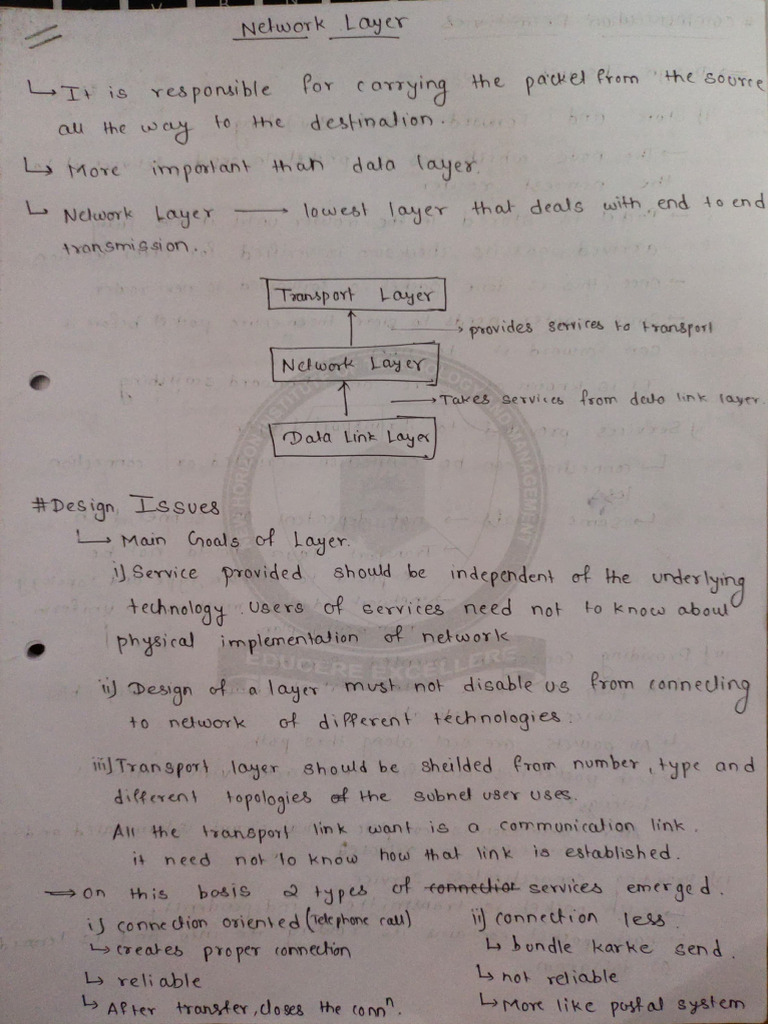 Network Layer
↳ It is responsible for carrying the packet from the source
all the way to the destination.
↳ More important than data layer.
↳ Network Layer —— lowest layer that deals with end to end
transmission..
Transport Layer
→ provides services to transport
Network Layer
→ Takes services from data link layer.
Data Link Layer
# Design Issues
↳ Main Goals of Layer.
i) Service provided should be independent of the underlying
technology. users of services need not to know about
physical implementation of network
ii) Design of a layer must not disable us from connecting
to network of different technologies.
iii) Transport layer should be sheilded from number, type and
different topologies of the subnet user uses.
All the transport link want is a communication link.
it need not to know how that link is established.
⇒ On this basis 2 types of connection services emerged.
i) connection oriented (Telephone call)
↳ creates proper connection
↳ reliable
↳ After transfer, closes the connⁿ.
ii) connection less.
↳ bundle karke send.
↳ not reliable
↳ More like postal system
HORIZON INSTITUTE OF TECHNOLOGY AND MANAGEMENT